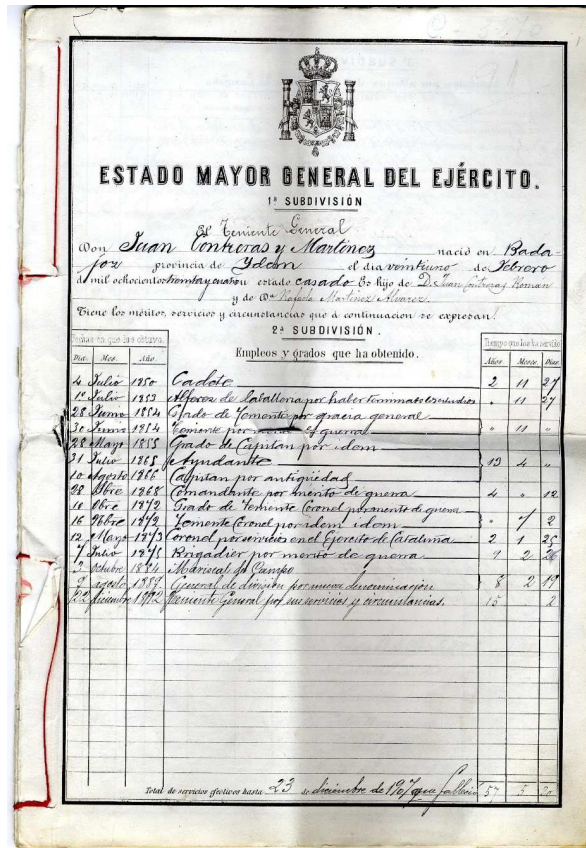 ESTADO MAYOR GENERAL DEL EJÉRCITO.
1ª SUBDIVISIÓN
El Teniente General
Don Juan Contreras y Martinez nació en Bada-
joz provincia de Idem el dia veintiuno de Febrero
de mil ochocientos treinta y cuatro su estado casado Es hijo de D. Juan Contreras Roman
y de Dª Rafaela Martinez Alvarez.
Tiene los méritos, servicios y circunstancias que á continuacion se expresan:
2ª SUBDIVISIÓN.
Fechas en que los obtuvo. Empleos y grados que ha obtenido. Tiempo que los ha servido
Dia. Mes. Año. Años Meses. Dias
4 Julio 1850 Cadete 2 11 27
1º Julio 1853 Alferez de Caballeria por haber terminado los estudios " 11 27
28 Junio 1854 Grado de Teniente por gracia general
30 Junio 1854 Teniente por de guerra " 11 "
28 Mayo 1855 Grado de Capitan por idem
31 Julio 1865 Ayudante 13 4 "
10 Agosto 1866 Capitan por antigüedad
28 1868 Comandante por merito de guerra 4 " 12
10 Obre 1872 Grado de Teniente Coronel por merito de guerra
16 1872 Teniente Coronel por idem idem " 7 2
12 Mayo 1873 Coronel por servicios en el Ejercito de Cataluña 2 1 25
7 Julio 1875 Brigadier por merito de guerra 9 2 26
2 Octubre 1884 Mariscal de Campo
9 agosto 1889 General de division por nueva denominación 8 2 19
22 diciembre 1892 Teniente General por sus servicios y circunstancias. 15 2
Total de servicios efectivos hasta 23 de diciembre de 1907 que falleció 57 5 20